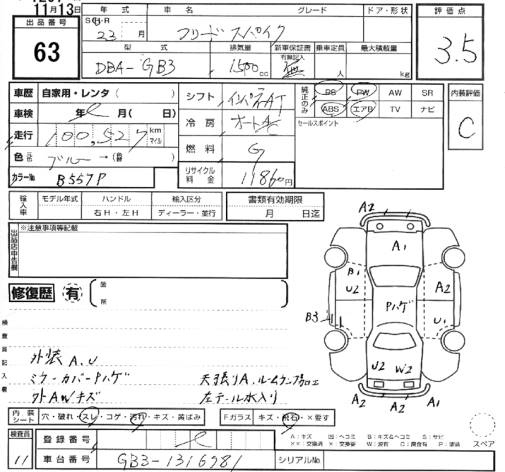 11月13日
出品番号
63
年式 車名 グレード ドア・形状
S・H・R
23 月 フリードスパイク
型式 排気量 新車保証書 有無記入 乗車定員 最大積載量
DBA-GB3 1500cc 無 人 kg
評価点
3.5
内装評価
C
車歴 自家用・レンタ( )
車検 年 月( 日)
走行 100,527 km マイル
色 ブルー →(替)
カラーNo B557P
シフト インパネAT
冷房 オートAC
燃料 G
リサイクル料金 11860円
純正のみ PS PW AW SR
ABS エアB TV ナビ
セールスポイント
輸入車 モデル年式 ハンドル 輸入区分
右H・左H ディーラー・並行
書類有効期限
月 日迄
出品店申告欄
※注意事項等記載
修復歴 有 箇所
検査員記入欄
外装A.U
ミラーカバーPハゲ 天張りA.ルームランプ加工
外AWキズ 左テール水入り
A2
A1
B1
U2
A2
Pハゲ
B3
U1
U1
U2
W2
A2
A2
A1
内装シート 穴・破れ・スレ・コゲ・汚れ・キズ・黄ばみ
Fガラス キズ・飛石・×要す
A:キズ U:ヘコミ B:キズ&ヘコミ S:サビ
XX:交換済 X:交換要 W:波有 C:腐食有 P:塗装
スペア
検査員
11
登録番号
車台番号 GB3-1316781
シリアルNo